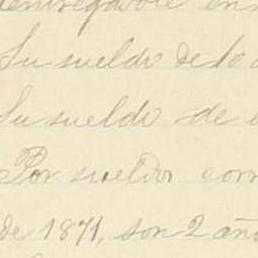 Su sueldo de 10
Su sueldo de
Por sueldos
de 1871, son 2 año